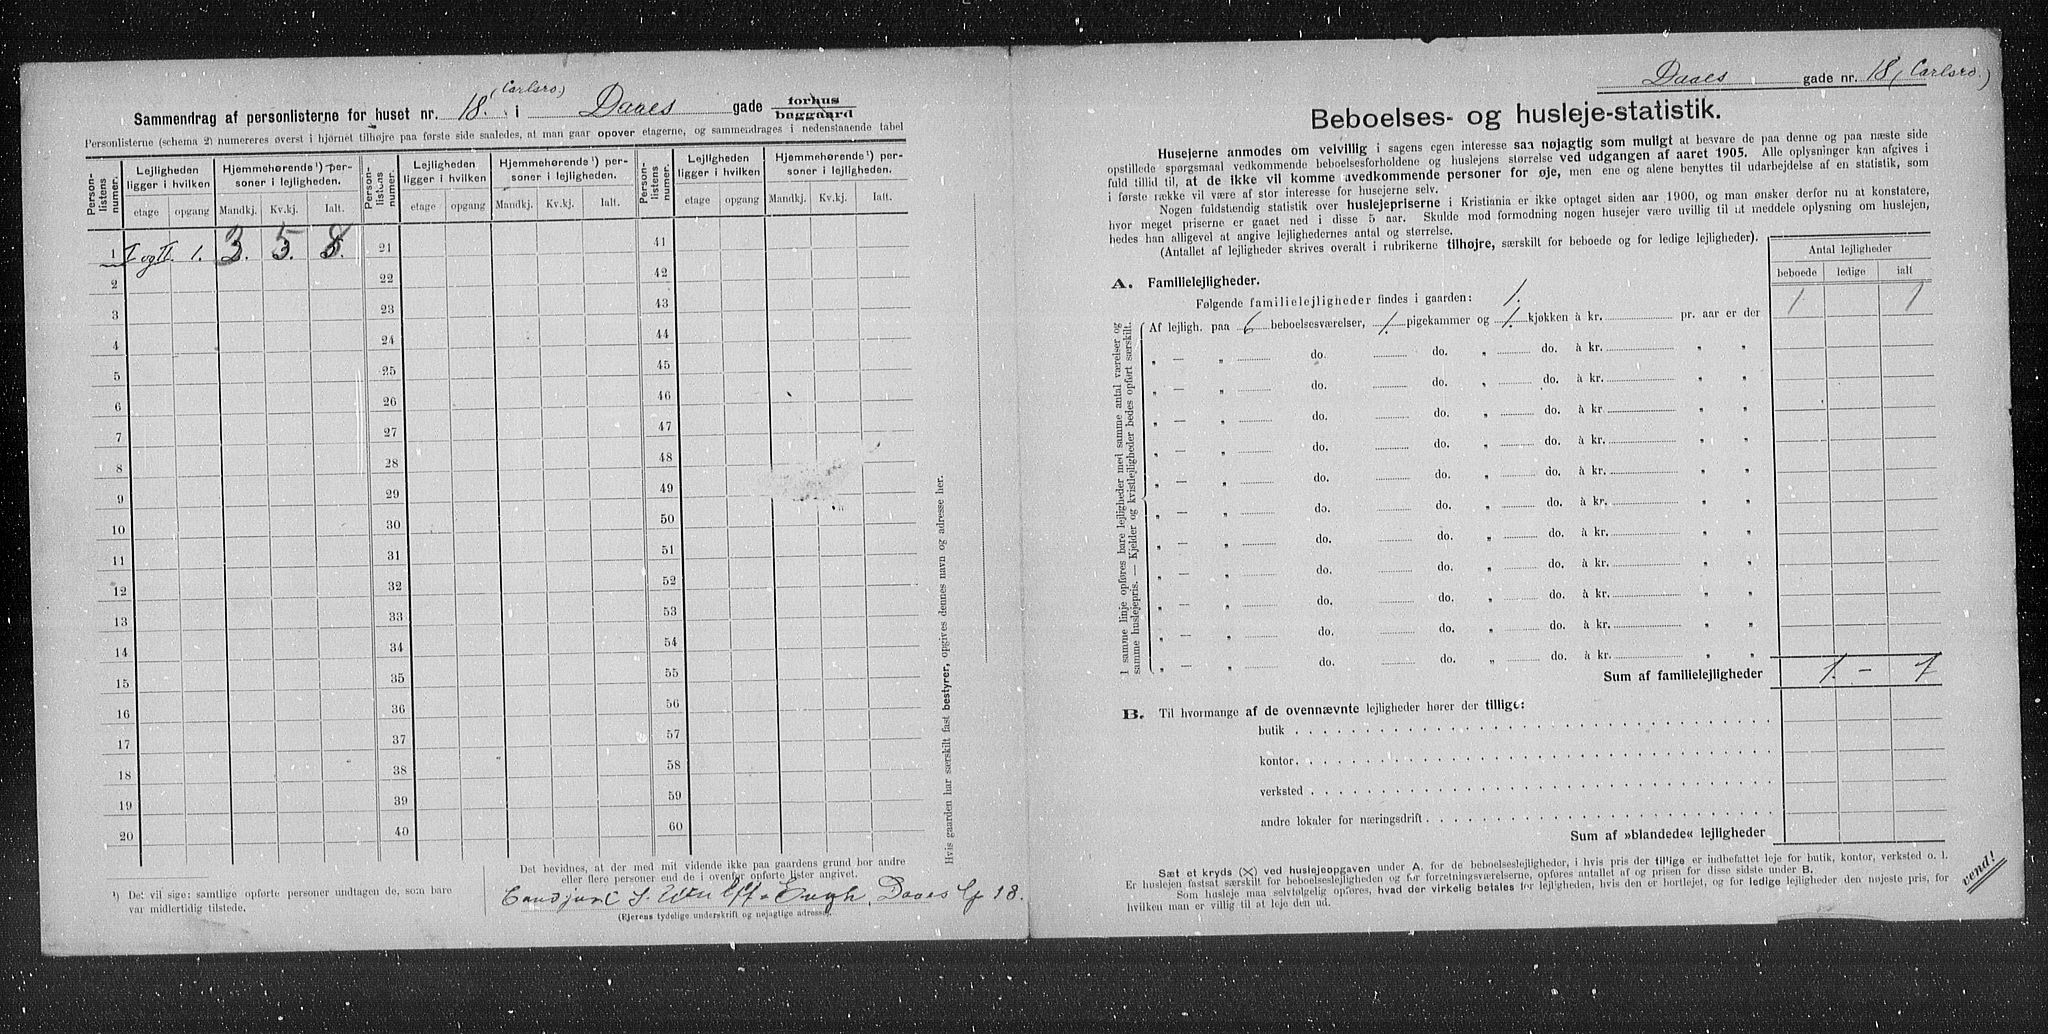 (Carlsro)
Sammendrag af personlisterne for huset nr. 18. i Daaes gade forhus baggaard
Personlisterne (schema 2) numereres øverst i hjørnet tilhøjre paa første side saaledes, at man gaar opover etagerne, og sammendrages i nedenstaaende tabel
Person-listens numer. Lejligheden ligger i hvilken Hjemmehørende¹) personer i lejligheden. Person-listens numer. Lejligheden ligger i hvilken Hjemmehørende¹) personer i lejligheden. Person-listens numer. Lejligheden ligger i hvilken Hjemmehørende¹) personer i lejligheden.
etage opgang Mandkj. Kv.kj. Ialt. etage opgang Mandkj. Kv.kj. Ialt. etage opgang Mandkj. Kv.kj. Ialt.
1 I og II. 1. 3. 5. 8. 21 41
2 22 42
3 23 43
4 24 44
5 25 45
6 26 46
7 27 47
8 28 48
9 29 49
10 30 50
11 31 51
12 32 52
13 33 53
14 34 54
15 35 55
16 36 56
17 37 57
18 38 58
19 39 59
20 40 60
Hvis gaarden har særskilt fast bestyrer, opgives dennes navn og adresse her.
¹) De: vil sige: samtlige opførte personer undtagen de, som bare
var midlertidig tilstede.
Det bevidnes, at der med mit vidende ikke paa gaardens grund bor andre
eller flere personer end de i ovenfor opførte lister angivet.
Engh, Daaes 18.
(Ejerens tydelige underskrift og nøjagtige adresse).
Daaes gade nr. 18 (Carlsro.)
Beboelses- og husleje-statistik.
Husejerne anmodes om velvillig i sagens egen interesse saa nøjagtig som muligt at besvare de paa denne og paa næste side
opstillede spørgsmaal vedkommende beboelsesforholdene og huslejens størrelse ved udgangen af aaret 1905. Alle oplysninger kan afgives i
fuld tillid til, at de ikke vil komme uvedkommende personer for øje, men ene og alene benyttes til udarbejdelse af en statistik, som
i første række vil være af stor interesse for husejerne selv.
Nogen fuldstændig statistik over huslejepriserne i Kristiania er ikke optaget siden aar 1900, og man ønsker derfor nu at konstatere,
hvor meget priserne er gaaet ned i disse 5 aar. Skulde mod formodning nogen husejer være uvillig til at meddele oplysning om huslejen,
bedes han alligevel at angive lejlighedernes antal og størrelse.
(Antallet af lejligheder skrives overalt i rubrikerne tilhøjre, særskilt for beboede og for ledige lejligheder).
Antal lejligheder
beboede ledige ialt
A. Familielejligheder.
Følgende familielejligheder findes i gaarden: 1.
I samme linje opføres bare lejligheder med samme antal værelser og
samme huslejepris. — Kjelder og kvistlejligheder bedes opført særskilt.
Af lejligh. paa 6 beboelsesværelser, 1. pigekammer og 1. kjøkken à kr. pr. aar er der 1 1
„ — „ do. do. „ do. à kr. „ „
„ — „ do. do. „ do. à kr. „ „
„ — „ do. do. „ do. à kr „ „
„ — „ do. do. „ do. à kr. „ „
„ — „ do. do. „ do. à kr. „ „
„ — „ do. do. „ do. à kr. „ „
„ — „ do. do. „ do. à kr. „ „
„ — „ do. do. „ do. à kr. „ „
„ — „ do. do. „ do. à kr. „ „
„ — „ do. do. „ do. à kr. „ „
„ — „ do. do. „ do. à kr. „ „
Sum af familielejligheder 1. - 1
B. Til hvormange af de ovennævnte lejligheder hører der tillige:
butik
kontor.
verksted
andre lokaler for næringsdrift
Sum af »blandede« lejligheder
Sæt et kryds (×) ved huslejeopgaven under A. for de beboelseslejligheder, i hvis pris der tillige er indbefattet leje for butik, kontor, verksted o. l.
Er huslejen fastsat særskilt for beboelseslejligheden og for forretningsværelserne, opføres antallet af og prisen for disse sidste under B.
Som husleje maa selvfølgelig opføres, hvad der virkelig betales for lejligheden, hvis den er bortlejet, og for ledige lejligheder den nøjeste pris, for
hvilken man er villig til at leje den ud.
vend!